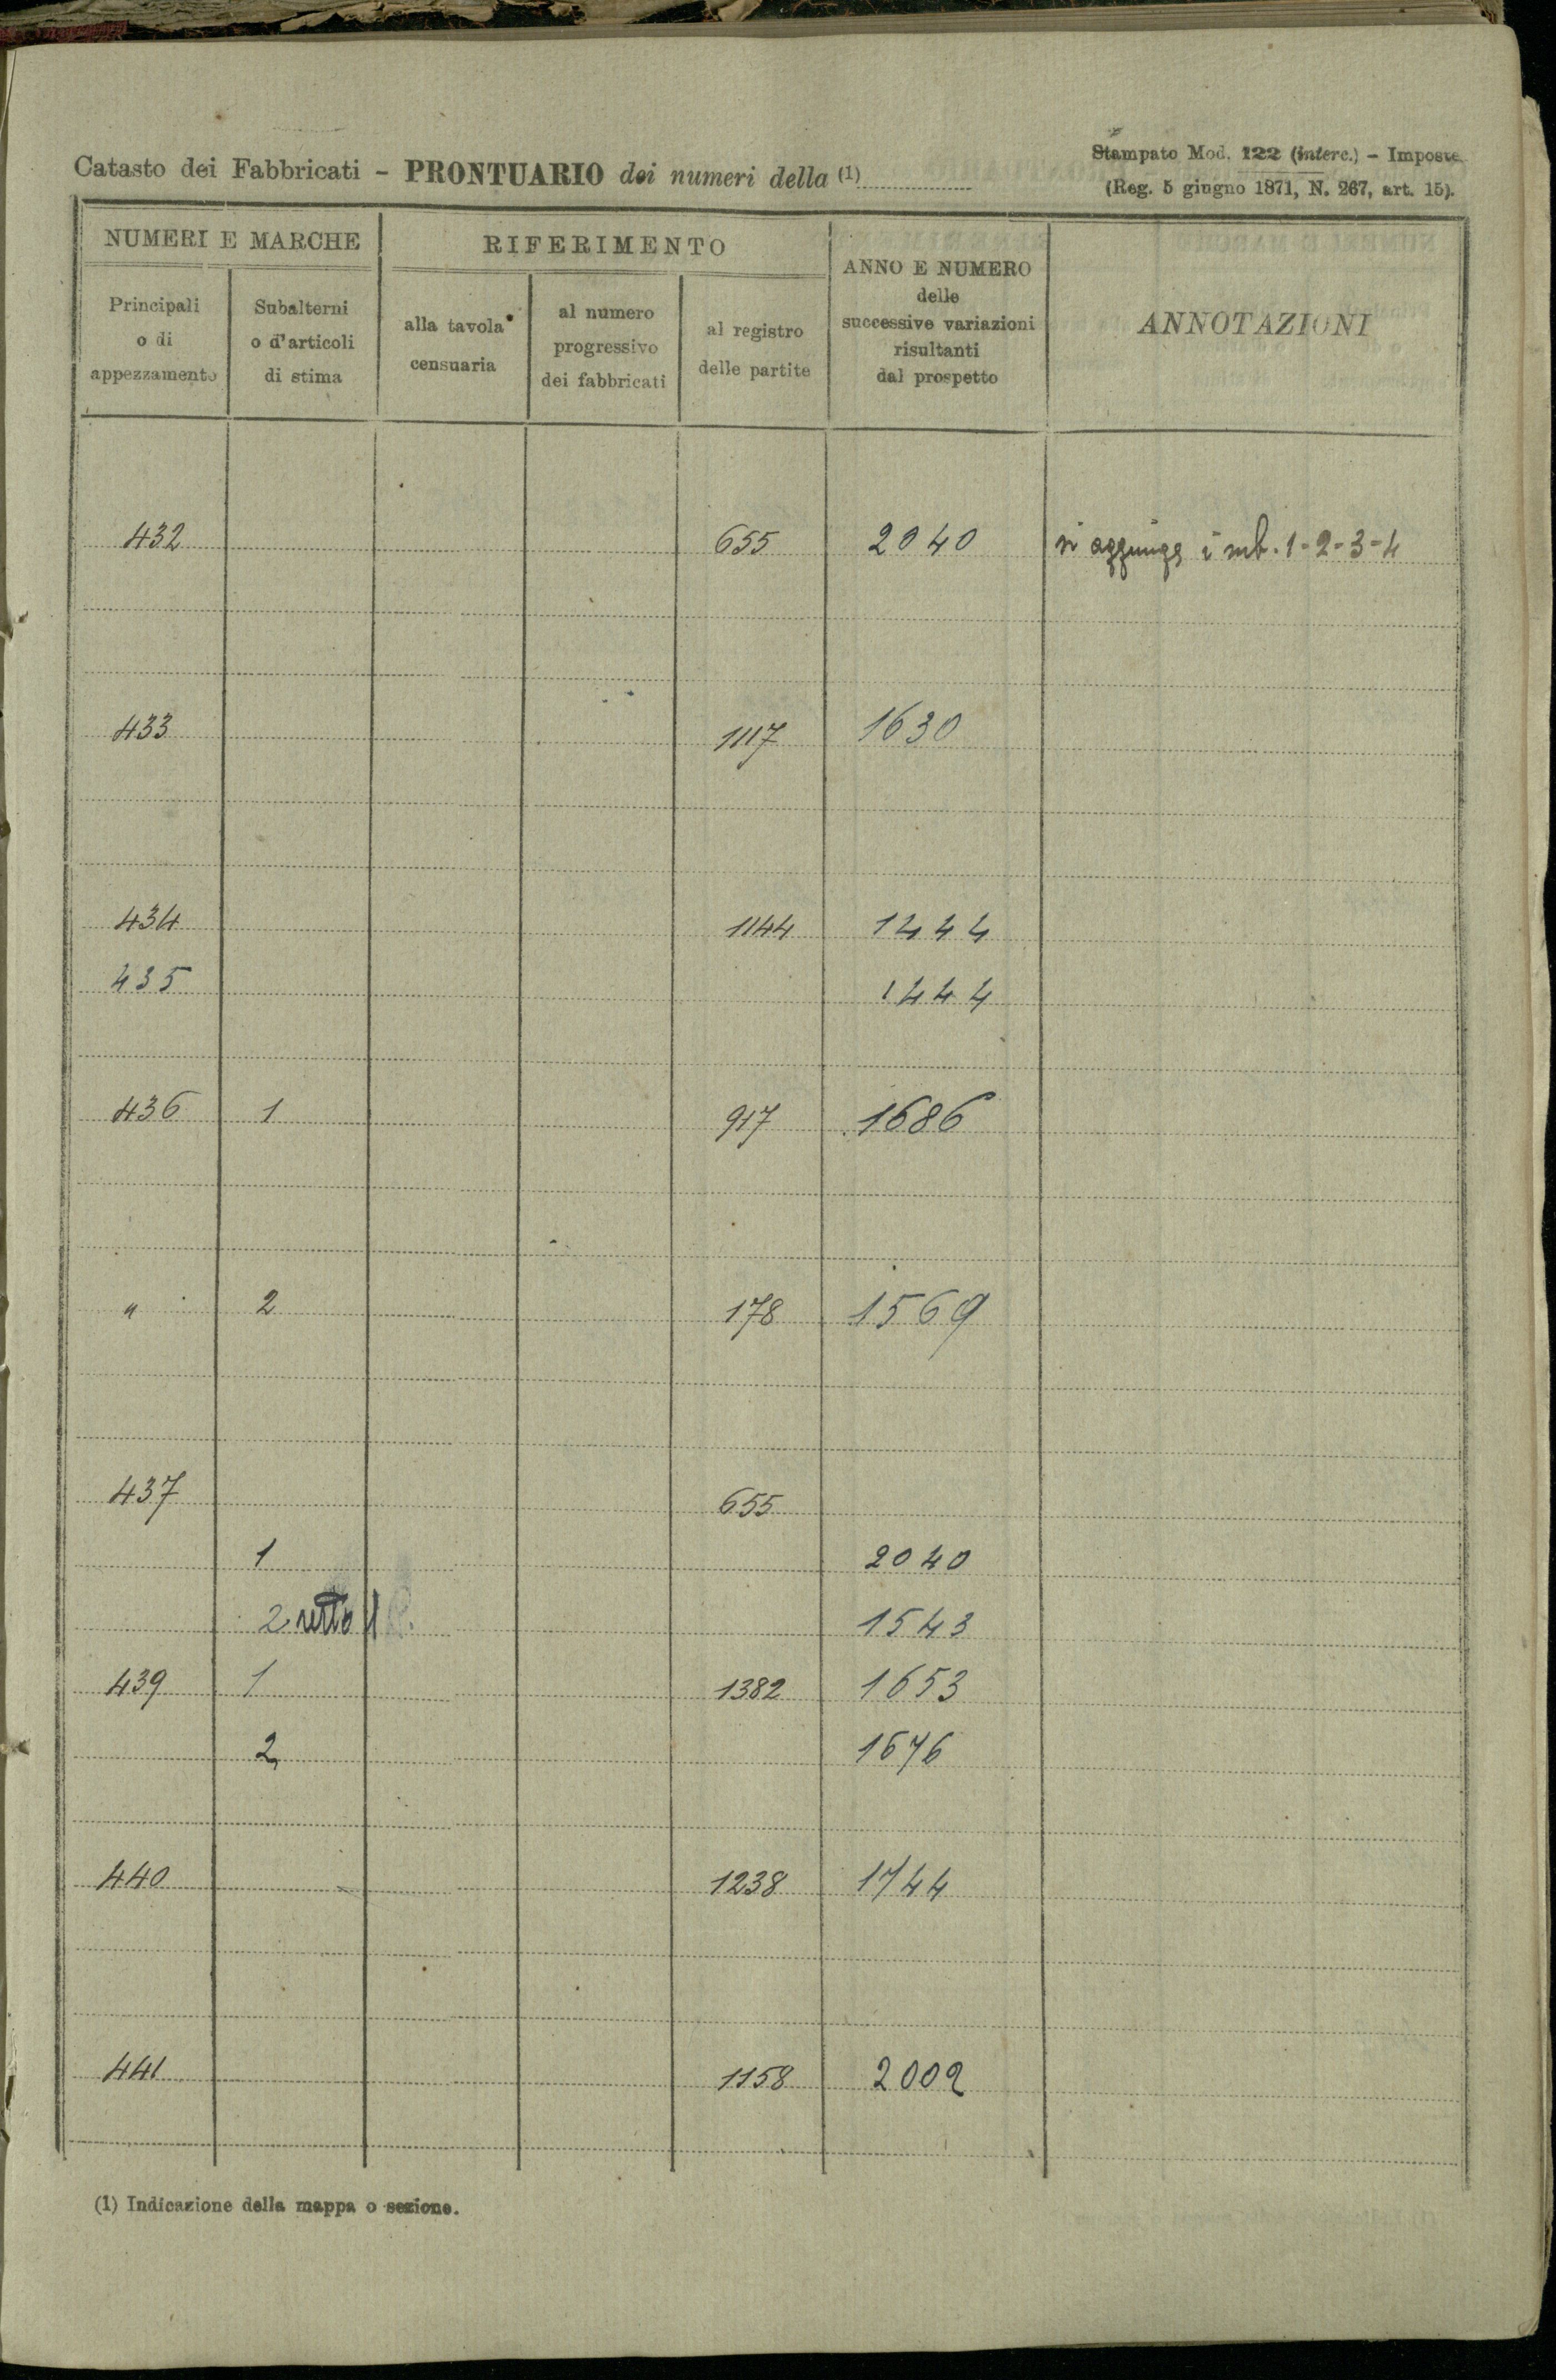 Catasto dei Fabbricati - PRONTUARIO dei numeri della (1)
Stampato Mod. 122 (interc.) - Imposte
(Reg. 5 giugno 1871, N. 267, art. 15).
NUMERI E MARCHE
RIFERIMENTO
ANNO E NUMERO
delle
successive variazioni
risultanti
dal prospetto
ANNOTAZIONI
Principali
o di
appezzamento
Subalterni
o d'articoli
di stima
alla tavola
censuaria
al numero
progressivo
dei fabbricati
al registro
delle partite
432 655 2040 si aggiunge i sub. 1-2-3-4
433 1117 1630
434 1144 1444
435 1444
436 1 917 1686
" 2 178 1569
437 655
1 2040
2 1543
439 1 1382 1653
2 1676
440 1238 1744
441 1158 2002
(1) Indicazione della mappa o sezione.